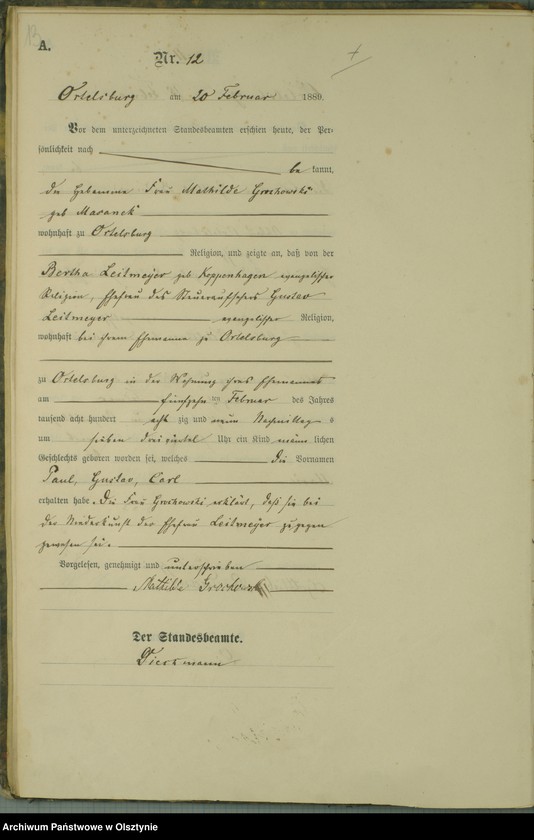 A.
Nr. 12
Ortelsburg am 20 Februar 1889.
Vor dem unterzeichneten Standesbeamten erschien heute, der Per-
sönlichkeit nach
be kannt,
die Hebamme Frau Mathilde Grochowski
geb Maranek
wohnhaft zu Ortelsburg
Religion, und zeigte an, daß von der
Bertha Leitmeyer geb Koppenhagen evangelischer
Religion, Ehefrau des Steueraufsehers Gustav
Leitmeyer evangelischer Religion,
wohnhaft bei ihrem Ehemanne zu Ortelsburg
zu Ortelsburg in der Wohnung ihres Ehemannes
am fünfzehn ten Februar des Jahres
tausend acht hundert acht zig und neun Nachmittags
um sieben dreiviertel Uhr ein Kind männ lichen
Geschlechts geboren worden sei, welches die Vornamen
Paul, Gustav, Carl
erhalten habe. Die Frau Grochowski erklärt, daß sie bei
der Niederkunft der Ehefrau Leitmeyer zugegen
gewesen sei.
Vorgelesen, genehmigt und unterschrieben
Mathilde Grochowski
Der Standesbeamte.
Archiwum Państwowe w Olsztynie